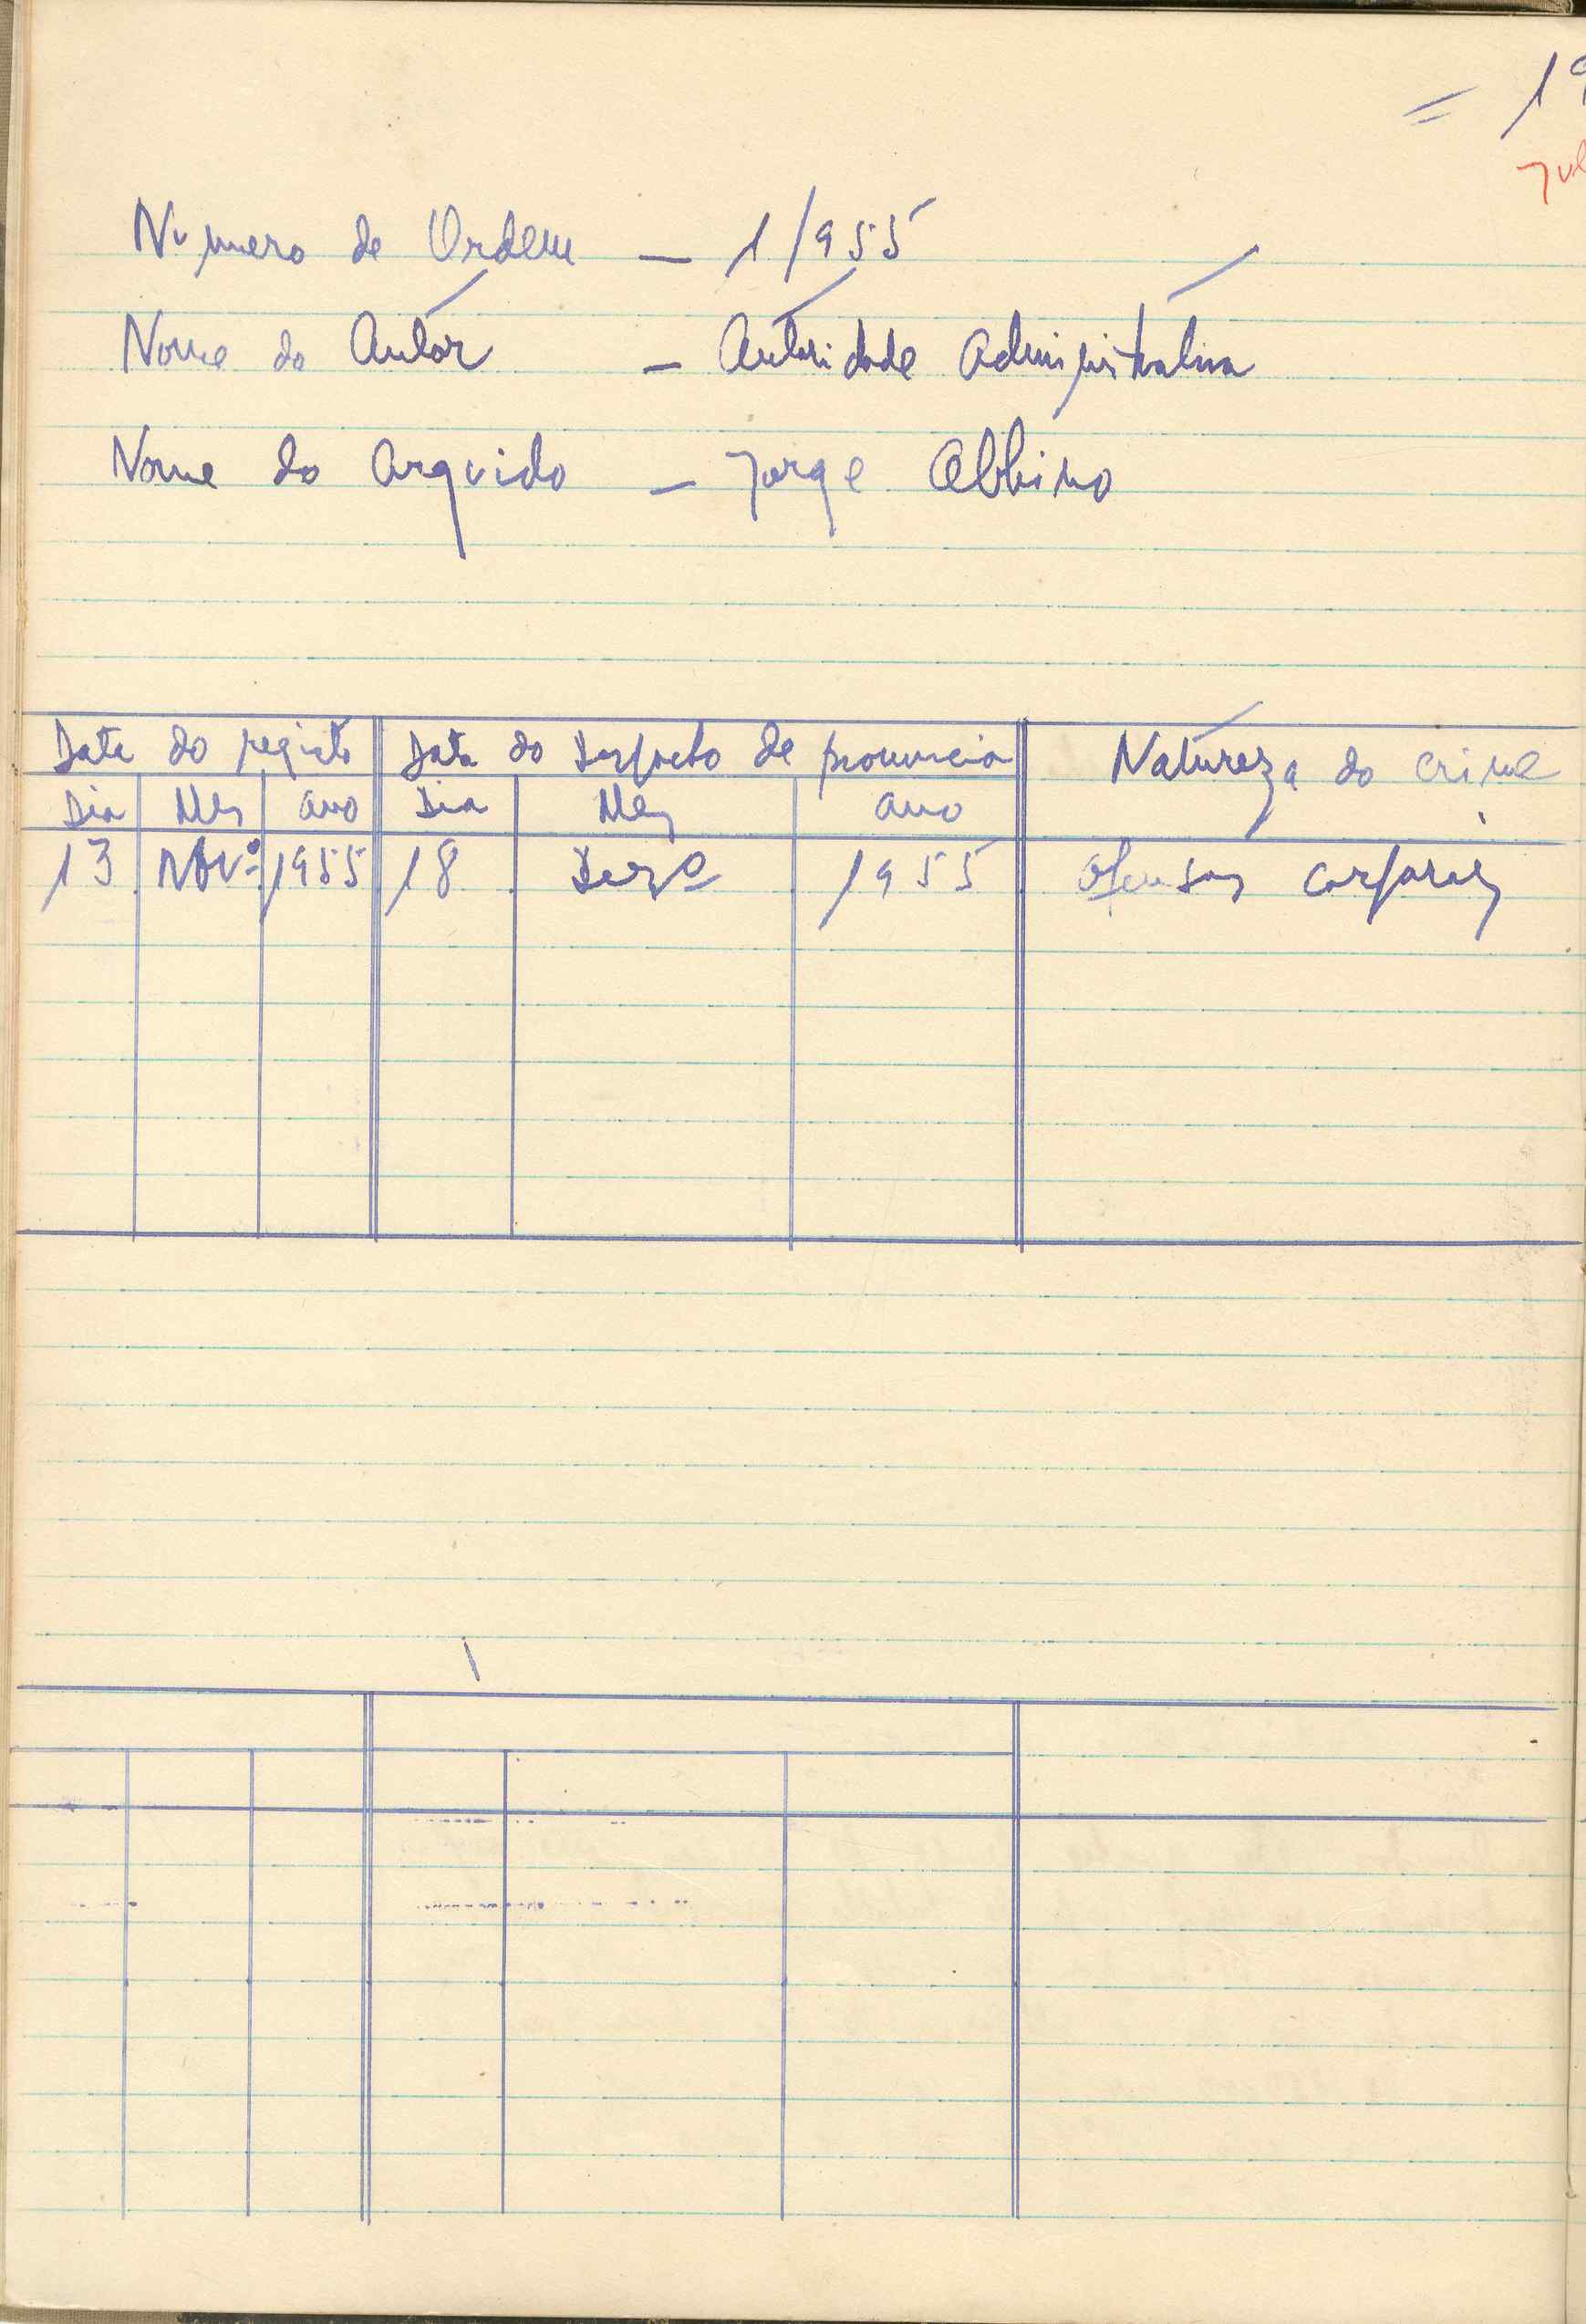 = 19
Numero de Ordem — 1/955
Nome do Autor — Autoridade Administrativa
Nome do Arguido — Jorge Albino
Data do registo Data do Despacho de pronuncia Natureza do crime
Dia Mes ano Dia Mes ano
13 Novº 1955 18 Dezº 1955 Ofensas corporais